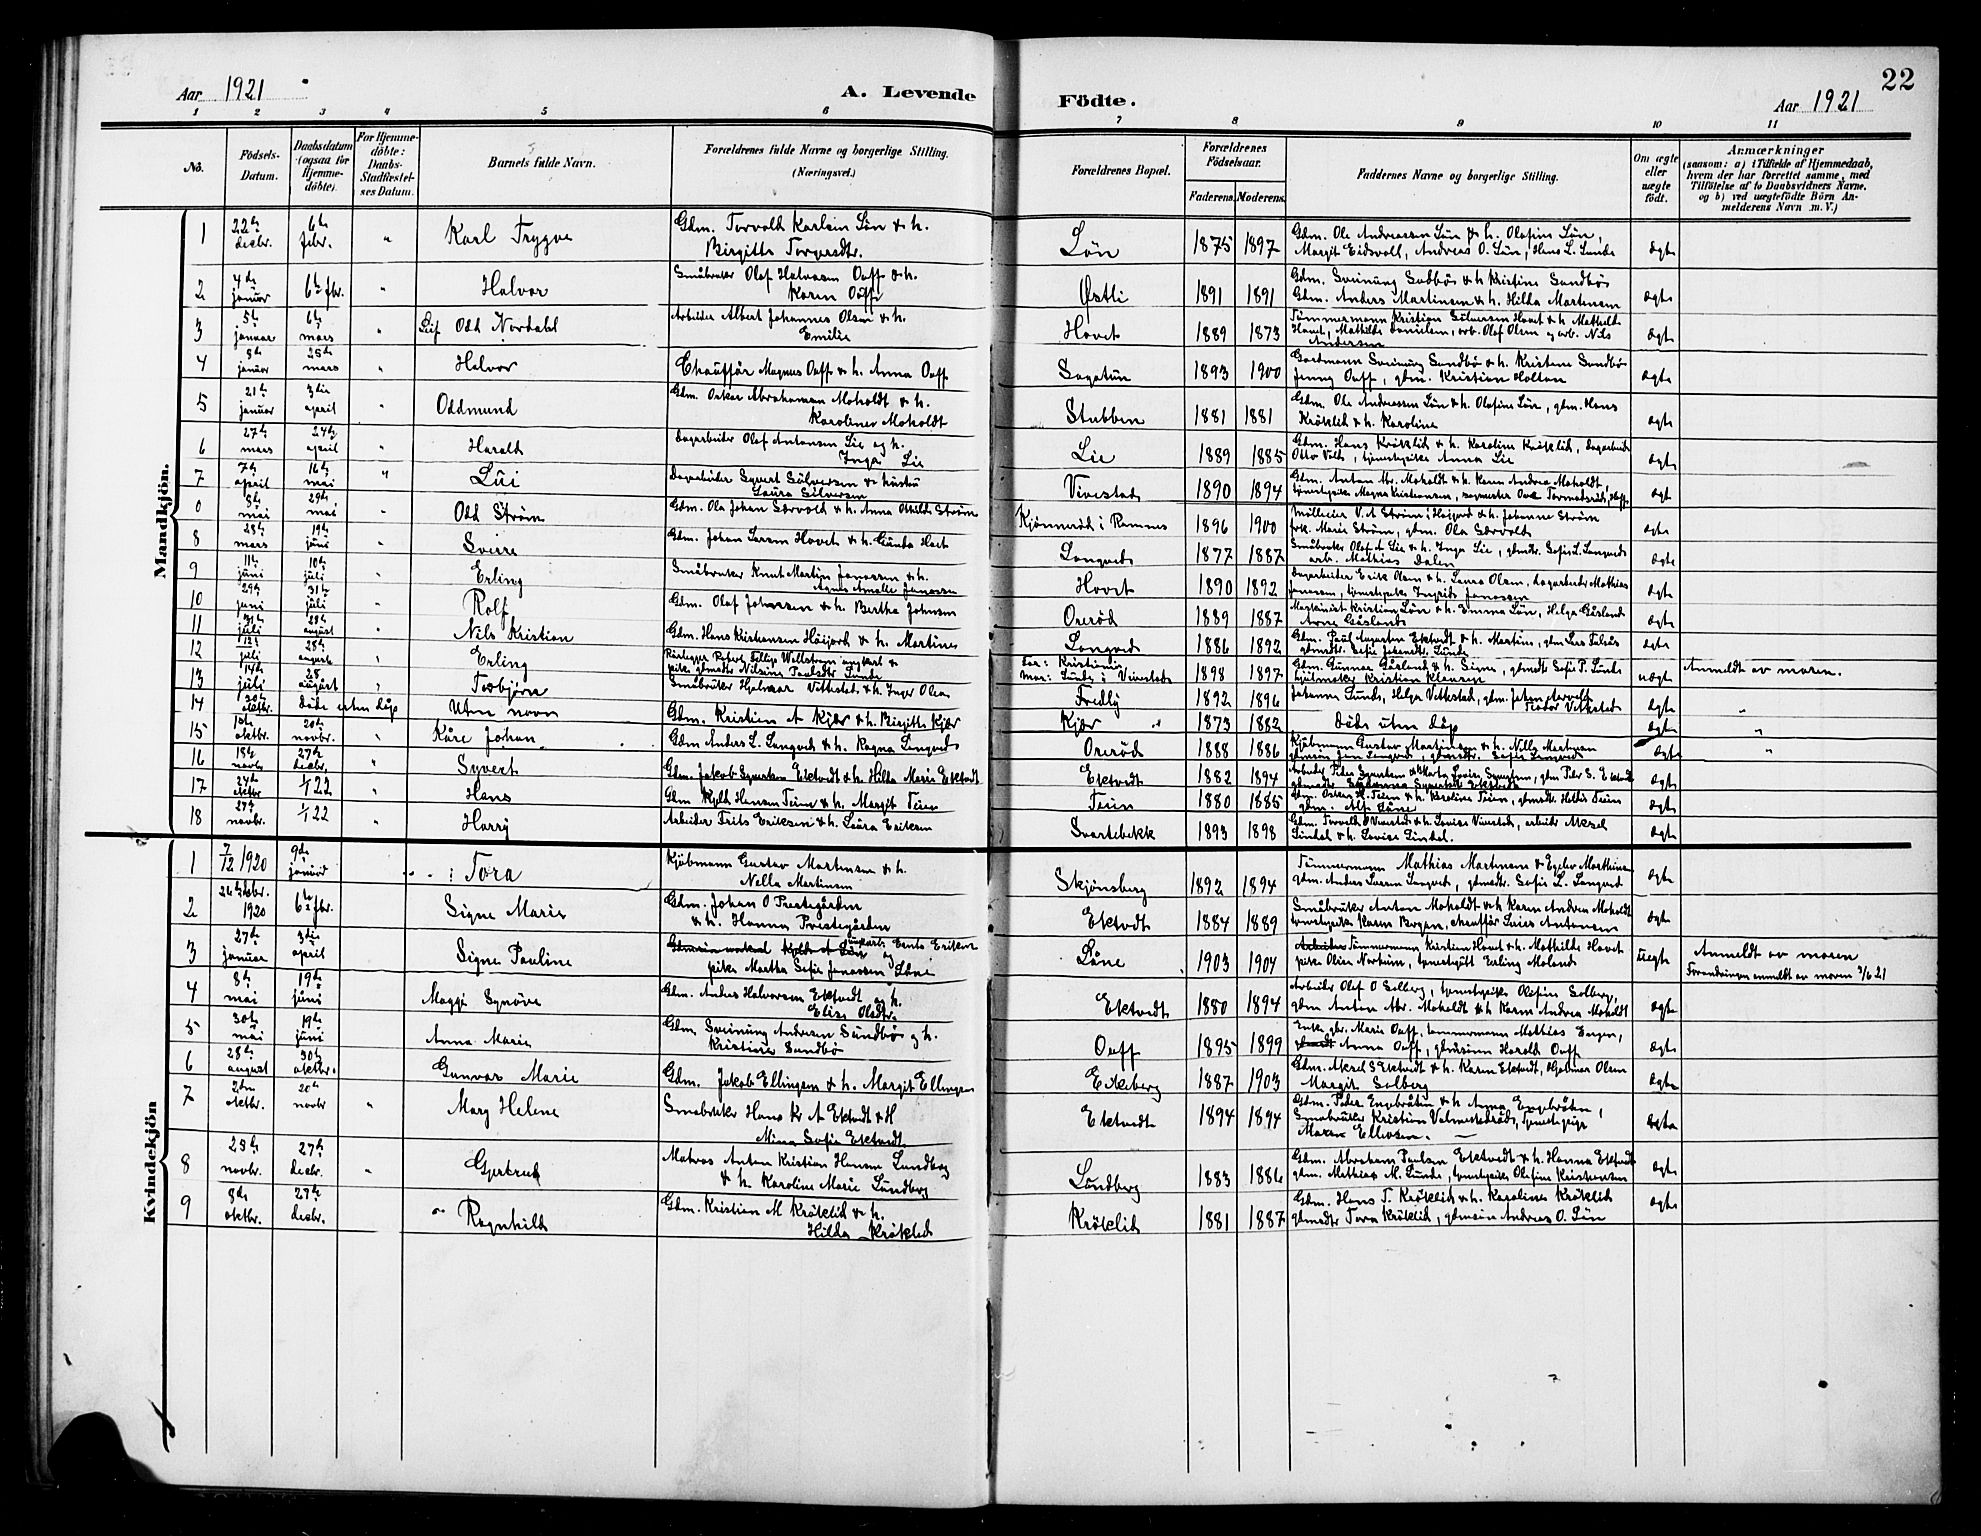 Aar 1921
A. Levende Födte.
22
Aar 1921
1 2 3 4 5 6 7 8 9 10 11
No.
Födsels-Datum.
Daabsdatum (ogsaa for Hjemmedöbte).
For Hjemmedöbte: Daabs-Stadfæstelses Datum.
Barnets fulde Navn.
Forældrenes fulde Navne og borgerlige Stilling. (Næringsvei.)
Forældrenes Bopæl.
Forældrenes Födselsaar.
Faderens. Moderens.
Faddernes Navne og borgerlige Stilling.
Om ægte eller uægte født.
Anmærkninger
(saasom: a) i Tilfælde af Hjemmedaab, hvem der har forrettet samme, med Tilføielse af to Daabsvidners Navne, og b) ved uægtefødte Börn Anmelderens Navn m. V.)
Mandkjön.
1 22de decbr. 6te febr. " Karl Trygve Gdm. Torvald Karlsen Lön & h. Birgitte Torgersdtr. Lön 1875 1897 Gdm. Ole Andreassen Lön & h. Olefine Lön, Margit Eidsvoll, Andreas O. Lön, Hans L. Lunde ægte
2 4de januar 6te fbr. " Halvor Småbruker Olaf Halvorsen Ouff & h. Karen Ouff Østli 1891 1891 Gdm. Sveinung Sundbö & h. Kristine Sundbö Gdm. Anders Martinsen & h. Hilda Martinsen ægte
3 5te januar 6te mars " Leif Odd Nordahl Arbeider Albert Johannes Olsen & h. Emilie Hovet 1889 1873 Tömmermann Kristian Hovet & h. Mathilde Hovet, Mathilde Danielsen, arb. Olaf Olsen og arb. Nils Andersen ægte
4 8de januar 25de mars " Halvor Chaufför Magnus Ouff & h. Anna Ouff Sagatun 1893 1900 Gaardmann Sveinung Sundbö & h. Kristine Sundbö Jenny Ouff, gdm. Kristian Holtan ægte
5 21de januar 3die april " Oddmund Gdm. Oskar Abrahamsen Moholdt & h. Karoline Moholdt Stubben 1881 1881 Gdm. Ole Andreassen Lön & h. Olefine Lön, gdm. Hans Kröklid & h. Karoline ægte
6 27de mars 24de april " Harald Dagarbeider Olaf Antonsen Lie og h. Inga Lie Lie 1889 1885 Gdm. Hans Kröklid & h. Karoline Kröklid, Dagarbeider Otto Vold, tjenestepike Anna Lie ægte
7 7de april 16de mai " Lui Dagarbeider Syvert Silversen & hustru Laura Silversen Vivestad 1890 1894 Gdm. Anton Abr. Moholdt & h. Karen Andrea Moholdt, tjenestepike Magna Kristiansen ægt
0 8de mai 29de mai " Odd Ström Gdm. Ola Johan Særvold & h. Anna Othilde Ström Kjönneröd i Ramnes 1896 1900 Mölleeier V. A. Ström i Höijord & h. Johanne Ström frk. Marie Ström, gdm. Ola Særvold ægte
8 28de mars 19de juni " Sverre Gdm. Johan Larsen Hovet & h. Gunda Hovet Langved 1877 1887 Småbruker Olaf A. Lie & h. Inga Lie, gdmdtr. Sofie L. Langved arb. Mathias Dalen ægte
9 11te juni 10de juli " Erling Småbruker Knut Martin Janassen & h. Agnes Amalie Janassen Hovet 1890 1892 Dagarbeider Erik Olsen & h. Laura Olsen, dagarbeider Mathias Janassen, tjenestepike Ingrid Janassen ægte
10 29de juni 31te juli " Rolf Gdm. Olaf Johnsen & h. Bertha Johnsen Oreröd 1889 1887 Maskinist Kristian Lön & h. Emma Lön, Helga Gåsland Arne Gåsland ægte
11 31te juli 28de august " Nils Kristian Gdm. Hans Kristiansen Höijord & h. Martine Langved 1886 1892 Gdm. Paul Augustin Ektvedt & h. Martine, gdm Lars Falsås gdmdtr. Sofie Johansdtr. Lunde ægte
12 12te juli 28de august " Erling Rörlegger Robert Fellip Wallström ungkarl & pike gdmdtr Nilsine Paulsdtr Lunde Far: Kristiania Mor: Lunde i Vivestad 1898 1897 Gdm. Gunnar Gåsland & h. Signe, gdmdtr Sofie P. Lunde hjulmaker Kristian Klausen uægte Anmeldt av moren.
13 14de juli 28 august " Torbjörn Småbruker Hjalmar Vittestad & h. Inger Olea Fredly 1892 1896 Johanna Lunde, Helga Vittestad, gdm. Johan Arveld, Teodor Vittestad ægte "
14 30te oktbr. Döde uten dåp Uten navn Gdm. Kristian A Kjær & h. Birgitte Kjær Kjær " 1873 1882 Döde uten dåp ægte "
15 10de oktbr. 20de novbr. " Kåre Johan Gdm Anders L. Langved & h. Ragna Langved Oreröd 1888 1886 Kjöbmann Gustav Martinsen & h. Nella Martinsen ægte "
16 18de novb. 27de decbr. " Syvert Gdm. Jakob Syvertsen Ektvedt & h. Hilda Marie Ektvedt Ektvedt 1882 1894 Arbeider Peder Syvertsen & h. Marta Lovise Syvertsen, gdm. Peder S. Ektvedt ægte
17 24de oktbr 1/1 22 " Hans Gdm Kjeld Hansen Teien & h. Margit Teien Teien 1880 1885 Gdm. Oskar H. Teien & h. Karoline Teien, gdmdtr. Hettie Teien gdm. Alf Låne ægte
18 27de novbr. 1/1 22 " Harry Arbeider Frits Eriksen & h. Laura Eriksen Svartebekk 1893 1898 Gdm. Torvald Vivestad & h. Lovise Vivestad, arbeider Aksel Lindal & h. Lovise Lindal. ægte
Kvindekjön
1 7/12 1920 9de januar " " : Tora Kjöbmann Gustav Martinsen & h. Nella Martinsen Skjönsberg 1892 1894 Tömmermann Mathias Martinsen & Egelev Marthinsen gdm. Anders Larsen Langved, gdmdtr. Sofie L. Langved ægte
2 26de decbr. 1920 6te fbr. Signe Marie Gdm. Johan O Prestegården & h. Hanna Prestegården Ektvedt 1884 1889 Småbruker Anton Moholdt & h Karen Andrea Moholdt tjenestepike Karen Bergan, chauffør Leier Antonsen ægte
3 27de januar 3die april Signe Pauline ungkarl Bernt Eriksen og pike Martha Sofie Janassen Låne Låne 1903 1904 Tömmermann Kristian Hovet & h. Mathilde Hovet pike Olise Nortuim, tjenestegutt Erling Moland Uægte Anmeldt av moren Forandringen anmeldt av moren 3/6 21
4 8de mai 19de juni Maggi Synöve Gdm. Anders Halvorsen Ektvedt og h. Elise Olsdtr. Ektvedt 1880 1894 Arbeider Olaf O Solberg, tjenestepike Olefine Solberg, gdm Anton Abr. Moholdt & h Karen Andrea Moholdt ægte
5 30te mai 19de juni Anna Marie Gdm. Sveinung Andersen Sundbö og h. Kristine Sundbö Ouff 1895 1899 Enke gbr. Marie Ouff, tömmermann Mathias Bergan, Anna Ouff, gbrsön Harald Ouff ægte
6 28de august 30te oktbr. Gunvor Marie Gdm. Jakob Ellingsen & h. Margit Ellingsen Ekeberg 1887 1903 Gdm. Aksel S Ektvedt & h. Karen Ektvedt, Hjalmar Olsen Margit Solberg ægte
7 2den oktbr. 20de novbr " Mary Helene Småbruker Hans Kr A Ektvedt & H Mina Sofie Ektvedt Ektvedt 1894 1894 Gdm. Peder Engebråten & h. Anna Engebråten, Småbruker Kristian Valmestadröd, tjenestepige Maren Ellevsen. ægte
8 25de novbr. 27de decbr. " Gjertrud Matros Anton Kristian Hansen Lundberg & h. Karoline Marie Lundberg Lundberg 1883 1886 Gdm. Abraham Paulsen Ektvedt & h. Hanna Ektvedt gdm. Mathias M. Lunde, tjenestepike Olefine Kristiansen ægte
9 8de oktbr. 27de decbr. " Ragnhild Gdm. Kristian M Kröklid & h. Hilda Kröklid Kröklid 1881 1887 Gdm. Hans T. Kröklid & h. Karoline Kröklid gdmdtr Tora Kröklid, gdmsön Andreas O. Lön ægte